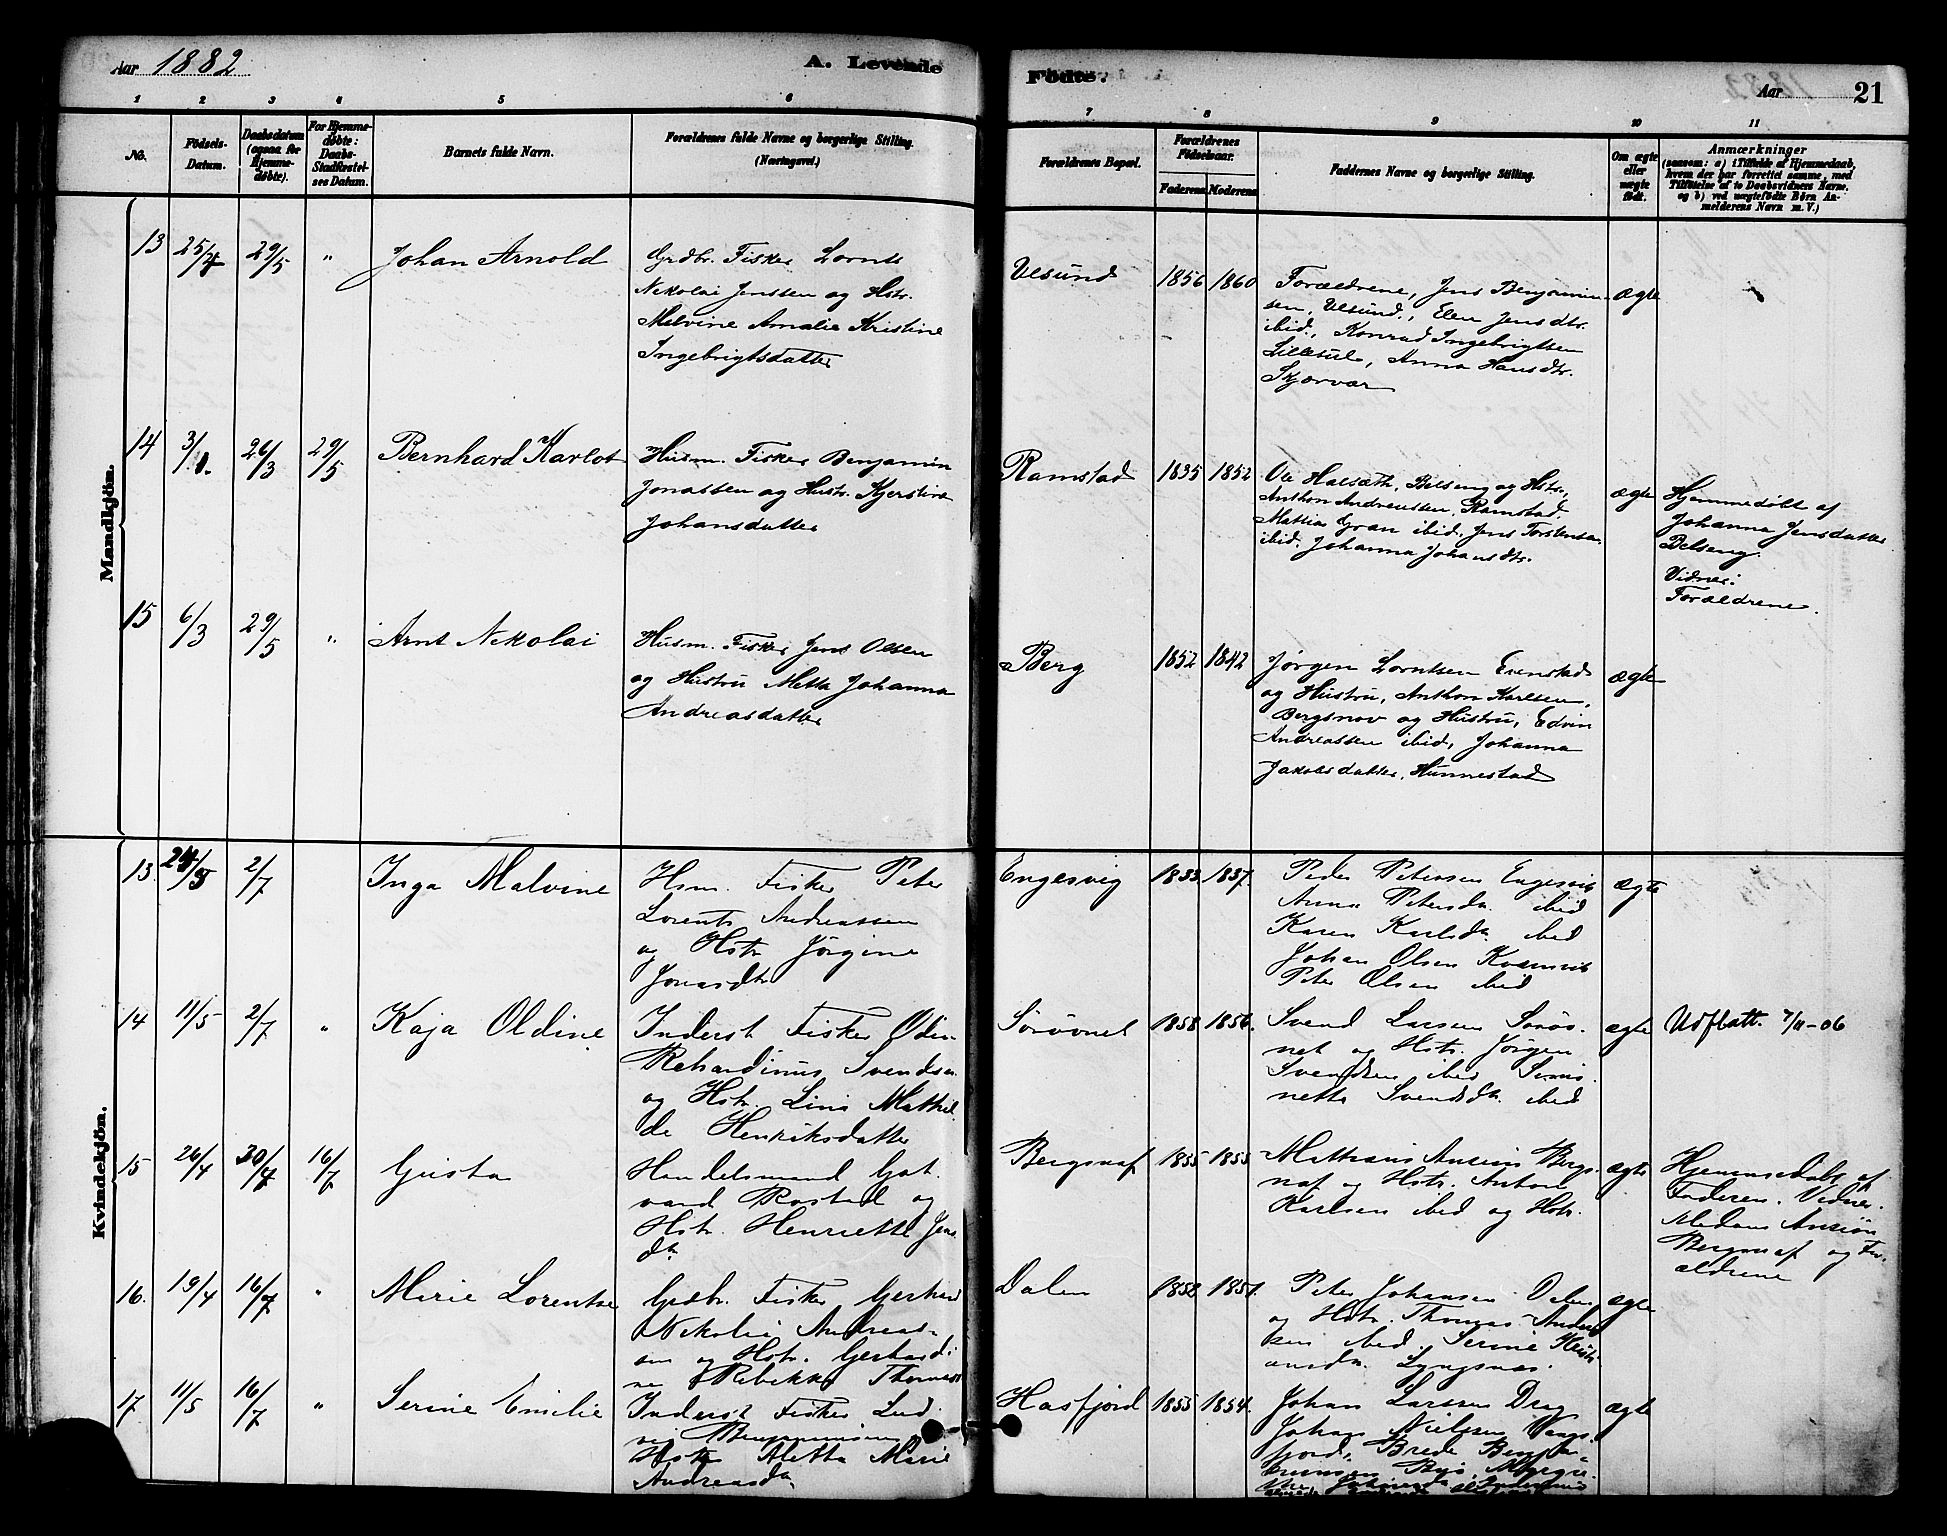 Aar 1882
A. Levende
Fødte.
Aar
21
1 2 3 4 5 6 7 8 9 10 11
No.
Fødsels-
Datum.
Daabsdatum
(ogsaa for
Hjemme-
døbte).
For Hjemme-
døbte:
Daabs-
Stadfæstel-
ses Datum.
Barnets fulde Navn.
Forældrenes fulde Navne og borgerlige Stilling.
(Næringsvei.)
Forældrenes Bopæl.
Forældrenes
Fødselsaar.
Faderens Moderens
Faddernes Navne og borgerlige Stilling.
Om ægte
eller
uægte
født.
Anmærkninger
(saasom: a) i Tilfælde af Hjemmedaab,
hvem der har forrettet samme, med
Tilføielse af to Daabsvidners Navne,
og b) ved uægtefødte Børn An-
melderens Navn m. V.)
Mandkjøn.
13 25/4 29/5 " Johan Arnold
Grdbr. Fisker Lornts
Nikolai Jenssen og Hstr.
Malvine Amalie Kristine
Ingebrigtsdatter
Ulsund 1856 1860
Forældrene, Jens Benjamin-
sen, Ulsund, Elen Jensdtr.
ibid., Konrad Ingebrigtsen
Lillesul, Anna Hansdtr.
Skjærvær
ægte
14 3/1. 26/3 29/5 Bernhard Karlot
Husm. Fisker Benjamin
Jonassen og Hustr. Kjerstine
Johansdatter
Ramstad 1835 1852
Ole Halsæth, Belseng og Hstr.,
Anthon Andreassen, Ramstad.
Mattias Gran ibid, Jens Torstensen
ibid. Johanna Johansdtr.
ægte
Hjemmedøbt af
Johanna Jensdatter
Belseng.
Vidner:
Forældrene.
15 6/3 29/5 " Arnt Nikolai
Husm. Fisker Jens Olsen
og Hustru Metta Johanna
Andreasdatter
Berg 1852 1842
Jørgen Lorntsen Evenstad
og Hustru, Anthon Karlsen,
Bergsnov og Hustru, Edvin
Andreassen ibid, Johanna
Jakobsdatter, Hunnestad
ægte
Kvindekjøn.
13. 24/5 2/7 Inga Malvine
Hsm. Fisker Peter
Lorents Andreassen
og Hstr Jørgine
Jonasdtr
Engesvig 1833 1837.
Peder Petersen Engesvik
Anna Petersdr. ibid
Karen Karlsdr. ibid
Johan Olsen Kvernvik
Peter Olsen ibid
ægte
14 11/5 2/7 " Kaja Oldine
Inderst Fisker Odin
Rehardinus Svendsen
og Hstr. Lina Mathil-
de Henriksdatter
Sørövnet 1858 1856.
Svend Larsen Sørøv-
net og Hstr. Jørgen
Svendsen ibid
netta Svendsdr. ibid
ægte
Udflatt. 7/11-06
15 26/4 30/4 16/7 Gusta
Handelsmand
vand Rostad og
Hstr. Henriette Jens
dr.
Bergsnaf 1855 1855
Mathias Ansion Bergs-
naf og Hstr. Anton
Karlsen ibid og Hstr.
ægte
Hjemmedøbt af
Faderen. Vidner.
Madam Ansiøn
Bergsnaf og For-
ældrene
16. 19/4 16/7 " Marie Lorentse
Grdbr. Fisker Gerhard
Nikolai Andreas-
sen og Hstr. Gerhardi-
ne Rebekka Thomasd
Dalen 1858 1851.
Peter Johansen Dalen
og Hstr. Thomas Ander-
sen ibid. Serine Kristi-
ansdr. Lyngsnæs.
ægte
17 11/5 16/7 " Serine Emilie
Inderst Fisker Lud-
vig Benjaminsen
Hstr Aletta Marie
Andreasdr.
Hasfjord 1855 1854.
Johan Larssen Drag
Johan Nielsen Vaags-
fjord, Brede Benja-
minsen
ægte